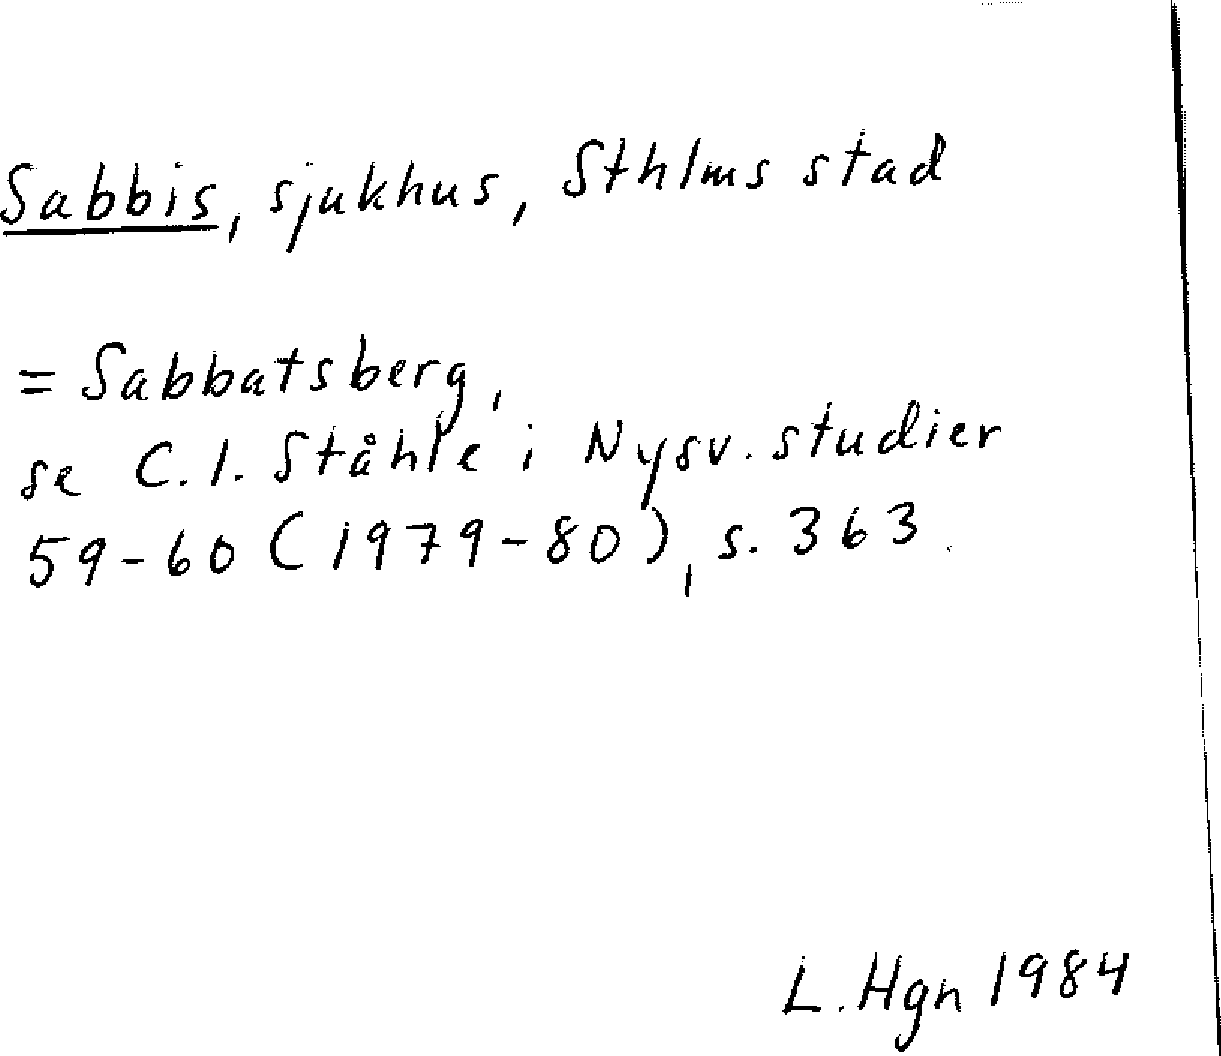 Sabbis, sjukhus, Sthlms stad
= Sabbatsberg,
se C.I. Ståhle i Nysv. studier
59-60 (1979-80), s. 363.
L. Hgn 1984